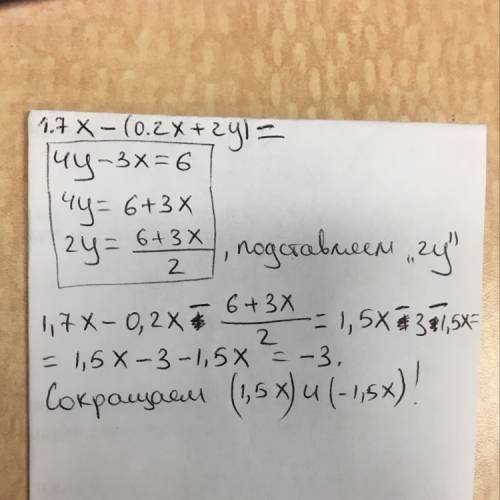 1.7x − (0.2x + 2y) =
4y − 3x = 6
4y = 6 + 3x
2y = (6 + 3x)/2 , подставляем „2y"
1,7x − 0,2x − (6 + 3x)/2 = 1,5x − 3 − 1,5x =
= 1,5x − 3 − 1,5x = −3.
Сокращаем (1,5x) и (−1,5x)!